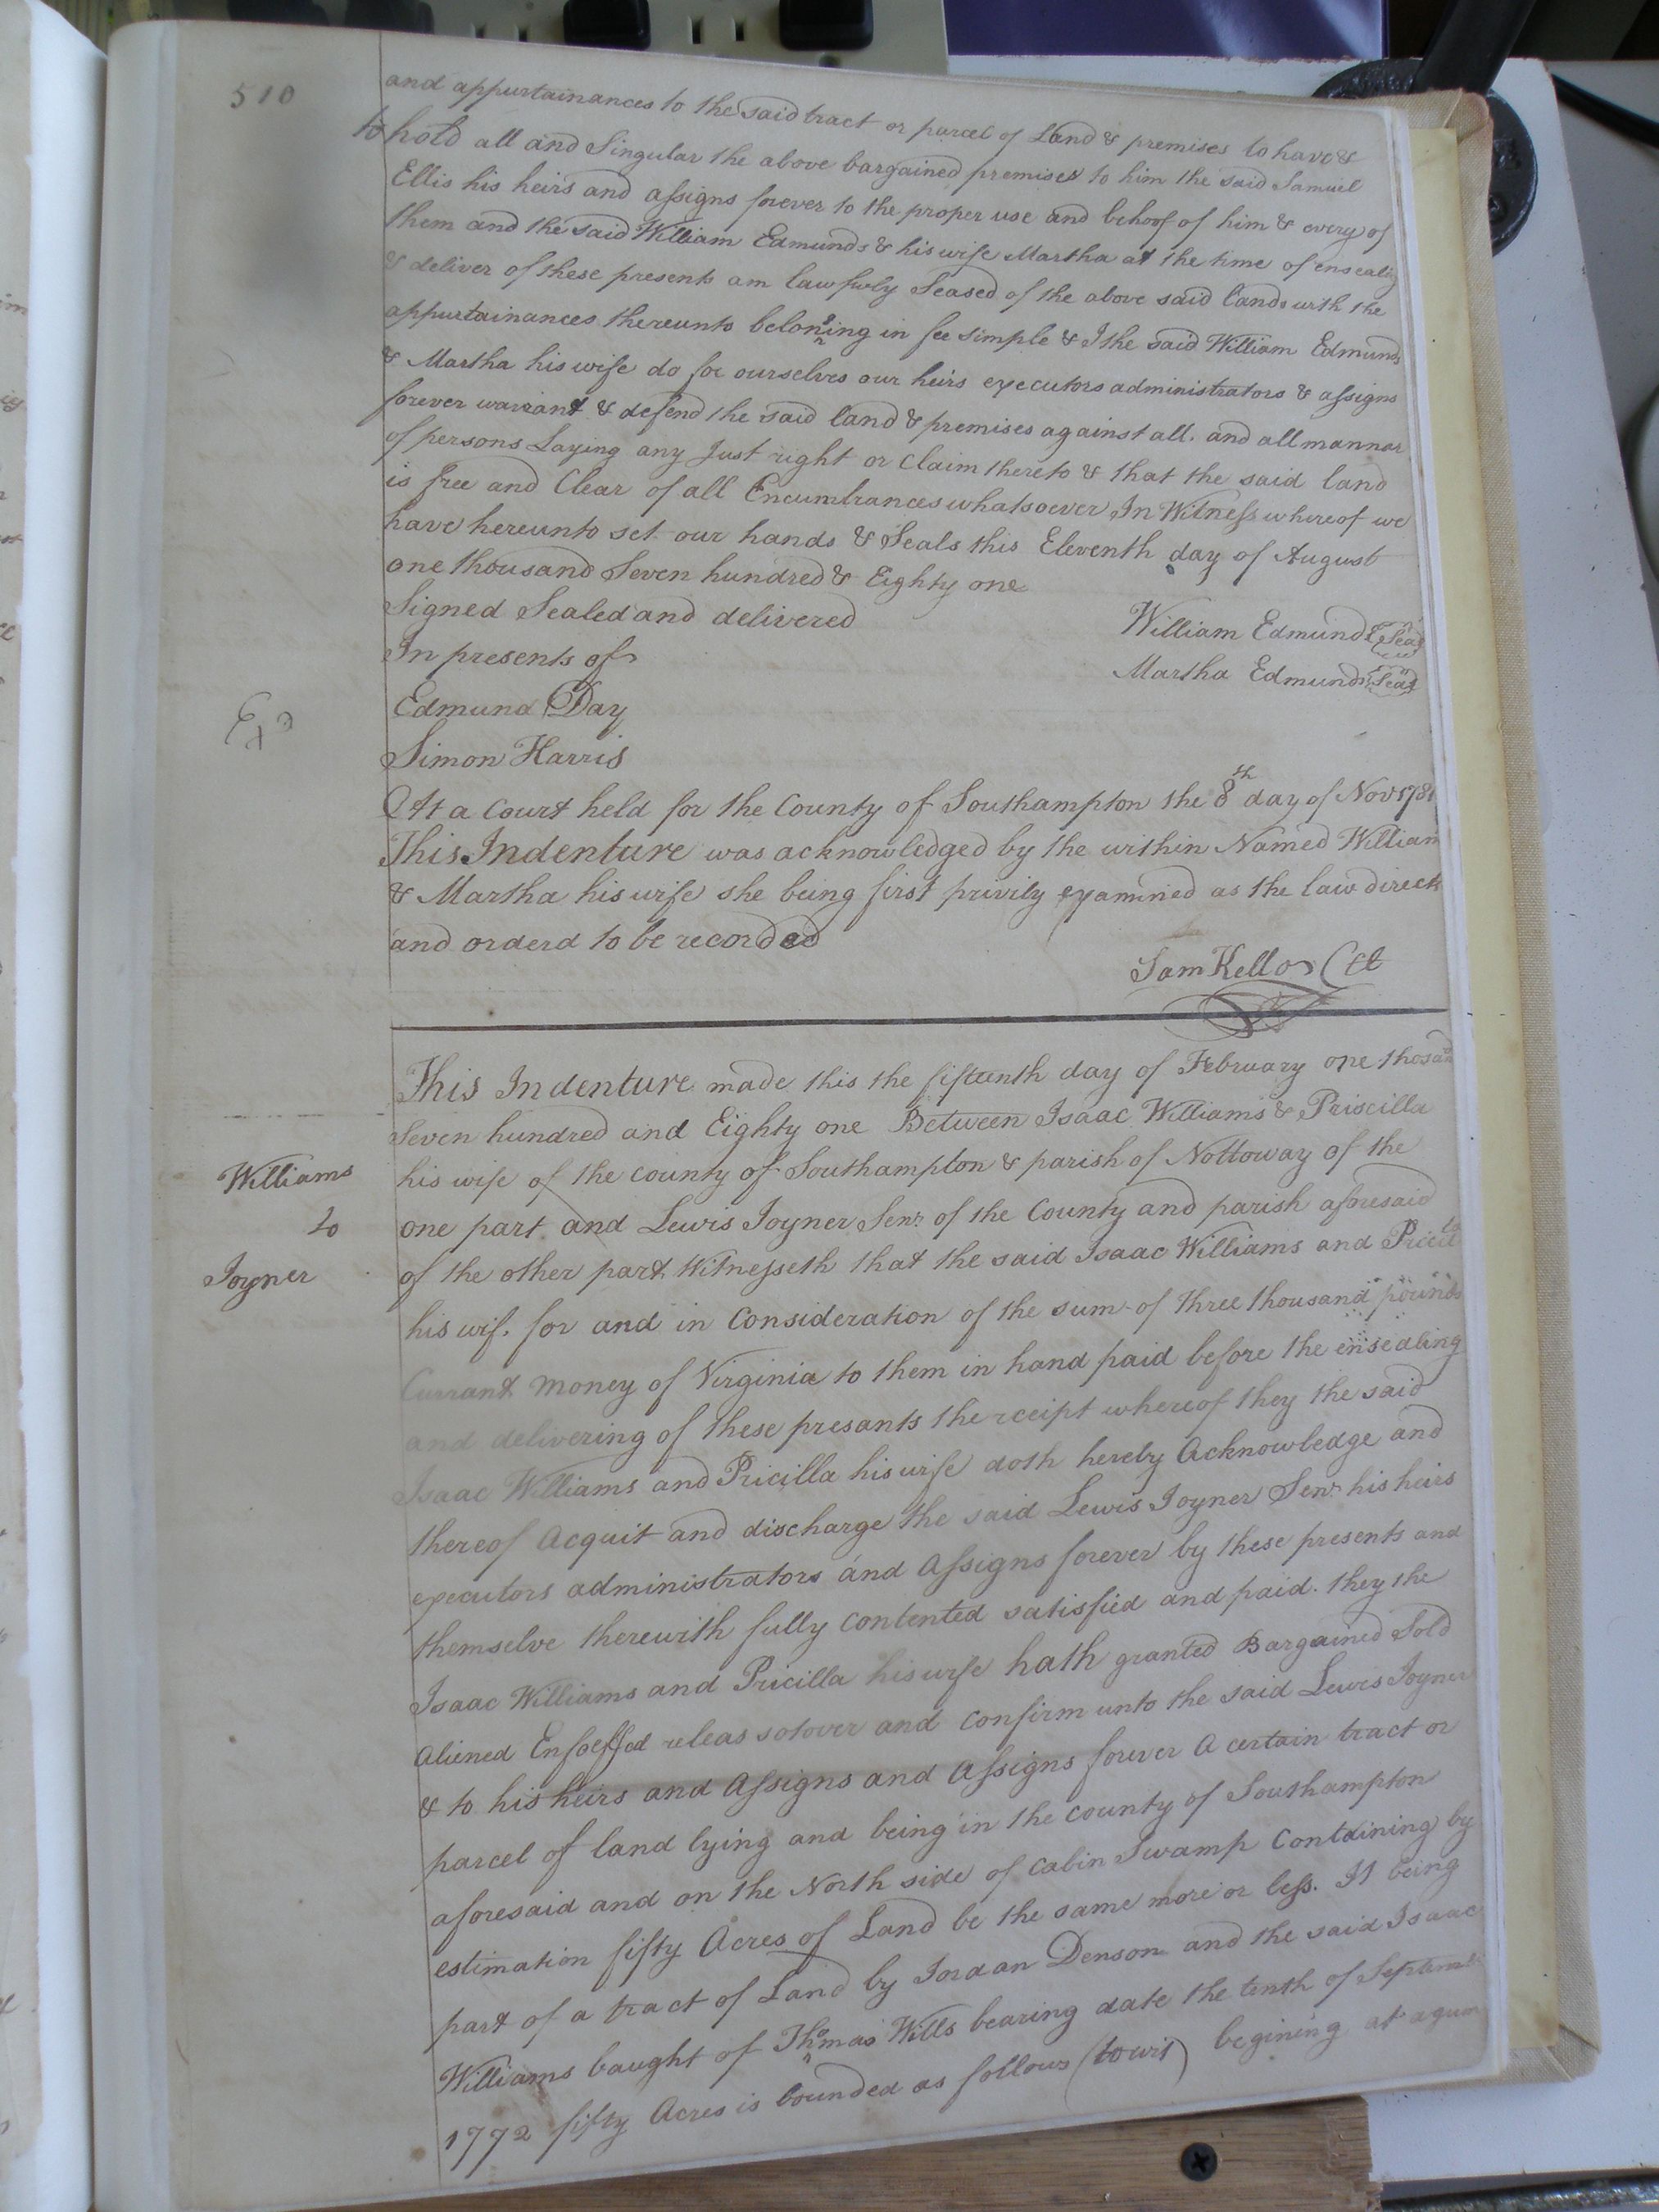 510
and appurtainances to the said tract or parcel of Land & premises to have &
to hold all and Singular the above bargained premises to him the said Samuel
Ellis his heirs and assigns forever to the proper use and behoof of him & every of
them and the said William Edmunds & his wife Martha at the time of ensealing
& deliver of these presents am lawfuly Seased of the above said lands with the
appurtainances thereunto belonging in fee simple & I the said William Edmunds
& Martha his wife do for ourselves our heirs executors administrators & assigns
forever warrant & defend the said land & premises against all. and all mannar
of persons Laying any Just right or Claim thereto & that the said land
is free and Clear of all Encumbrances whatsoever In Witness whereof we
have hereunto set our hands & Seals this Eleventh day of August
one thousand Seven hundred & Eighty one
Signed Sealed and delivered
William Edmunds Seal
In presents of
Martha Edmunds Seal
Edmund Day
Exd
Simon Harris
At a Court held for the County of Southampton the 8th day of Nov 1781
This Indenture was acknowledged by the within Named William
& Martha his wife she being first privily examined as the law directs
and orderd to be recorded
Sam Kello Clk
This Indenture made this the fifteenth day of February one thosand
Seven hundred and Eighty one Between Isaac Williams & Priscilla
Williams
his wife of the county of Southampton & parish of Nottoway of the
to
one part and Lewis Joyner Senr. of the County and parish aforesaid
Joyner
of the other part Witnesseth that the said Isaac Williams and
his wif. for and in Consideration of the sum of three thousand pounds
Currant money of Virginia to them in hand paid before the ensealing
and delivering of these presants the rceipt whereof they the said
Isaac Williams and Pricilla his wife doth hereby Acknowledge and
thereof Acquit and discharge the said Lewis Joyner Senr. his heirs
executors administrators and Assigns forever by these presents and
themselve therewith fully contented satisfied and paid. they the
Isaac Williams and Pricilla his wife hath granted Bargained Sold
Aliened Enfoeffed releas sotover and confirm unto the said Lewis Joyner
& to his heirs and Assigns and Assigns forever A certain tract or
parcel of land lying and being in the county of Southampton
aforesaid and on the North side of Cabin Swamp Containing by
estimation fifty Acres of Land be the same more or less. It being
part of a tract of Land by Jordan Denson and the said Isaac
Williams baught of Thomas Wills bearing date the tenth of
1772 fifty Acres is bounded as follows (towit) begining at a gum